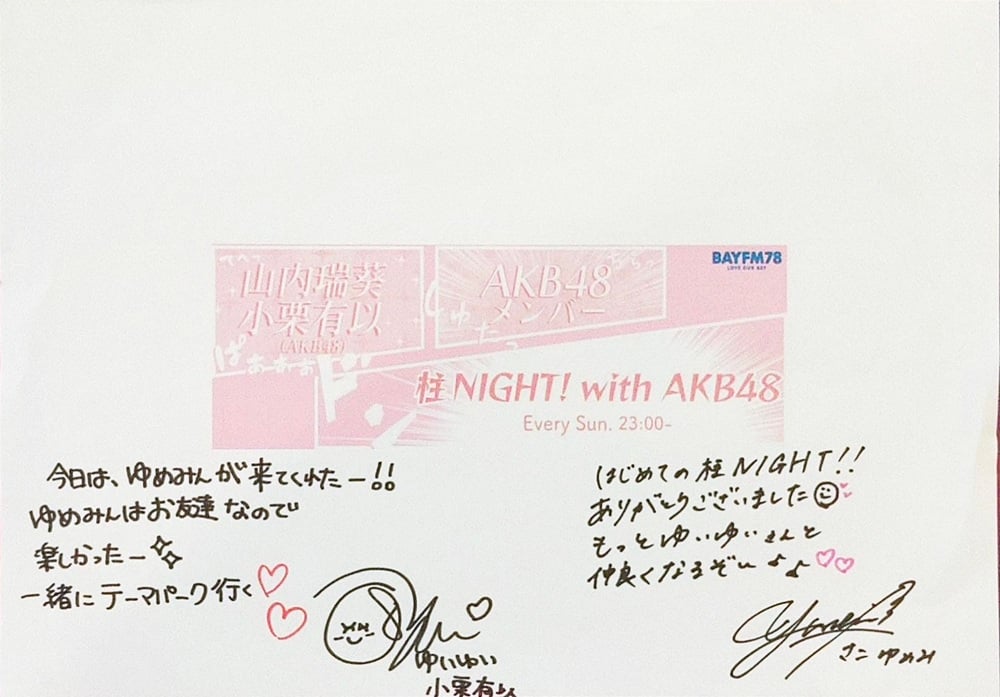 BAYFM78
LOVE OUR BAY
てへへ
山内瑞葵
小栗有以
(AKB48)
AKB48
メンバー
ぱぁぁぁぁ
柱NIGHT! with AKB48
Every Sun. 23:00-
今日は、ゆめみんが来てくれたー!!
ゆめみんはお友達なので
楽しかったー
一緒にテーマパーク行く
ゆいゆい
小栗有以
はじめての柱NIGHT!!
ありがとうございました
もっとゆいゆいさんと
仲良くなるぞー♪♪
さこゆめみ